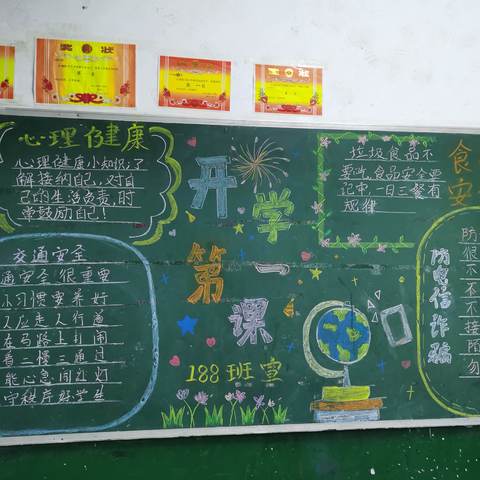 奖状
奖状
奖状
心理健康
心理健康小知识,了
解接纳自己,对自
己的生活负责,时
常鼓励自己!
开学
第一课
188班宣
垃圾食品不
要吃,食品安全要
记牢,一日三餐有
规律
食
安
交通安全
通安全很重要
小习惯要养好
人应走人行道
在马路上打闹
看二慢三通过
能心急闯红灯
守秩序好学生
防电信诈骗
防
很
不
不
不
接
陌
勿